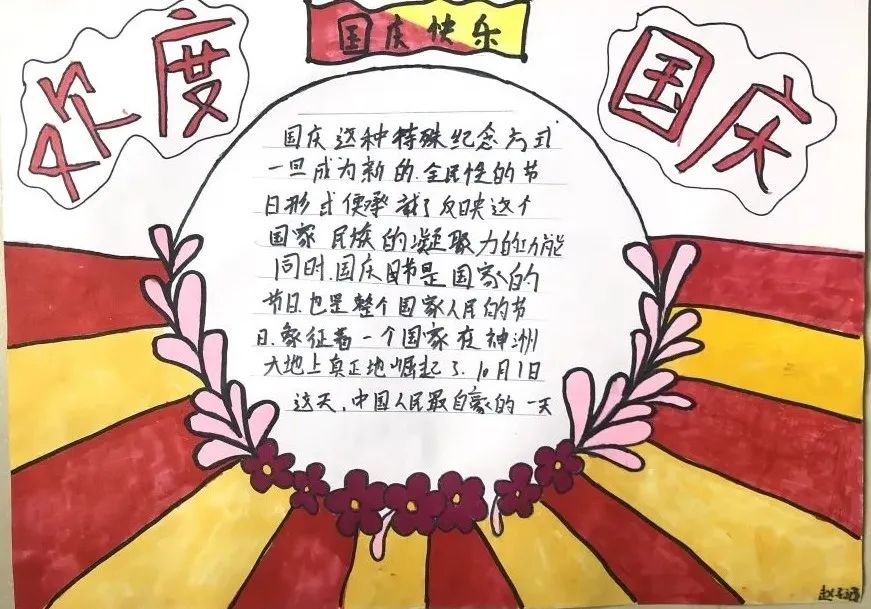 国庆快乐
欢度
国庆
国庆这种特殊纪念方式
一旦成为新的.全民性的节
日形式便承载了反映这个
国家 民族的凝聚力的功能
同时.国庆日节是国家的
节日.也是整个国家人民的节
日.象征着一个国家在神洲
大地上真正地崛起了.10月1日
这天.中国人民最自豪的一天